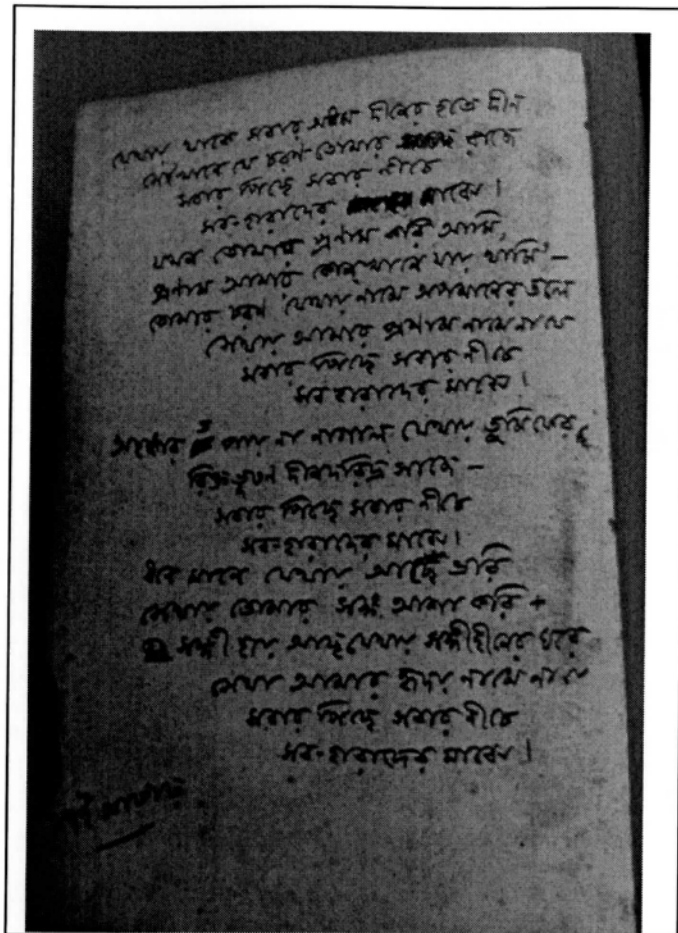 যেথায় থাকে সবার অধম দীনের হতে দীন
সেইখানে যে চরণ তোমার রাজে
সবার পিছে সবার নীচে
সব-হারাদের মাঝে।
যখন তোমায় প্রণাম করি আমি,
প্রণাম আমার কোন্‌খানে যায় থামি–
তোমার চরণ যেথায় নামে অপমানের তলে
সেথায় আমার প্রণাম নামে না যে
সবার পিছে সবার নীচে
সব হারাদের মাঝে।
অহঙ্কার ত পায় না নাগাল যেথায় তুমি ফের
রিক্তভূষণ দীনদরিদ্র সাজে–
সবার পিছে সবার নীচে
সব-হারাদের মাঝে।
ধনে মানে যেথায় আছে ভরি
সেথায় তোমার সঙ্গ আশা করি
সঙ্গী হয়ে আছ যেথায় সঙ্গীহীনের ঘরে
সেথা আমার হৃদয় নামে না যে
সবার পিছে সবার নীচে
সব-হারাদের মাঝে।
আষাঢ়